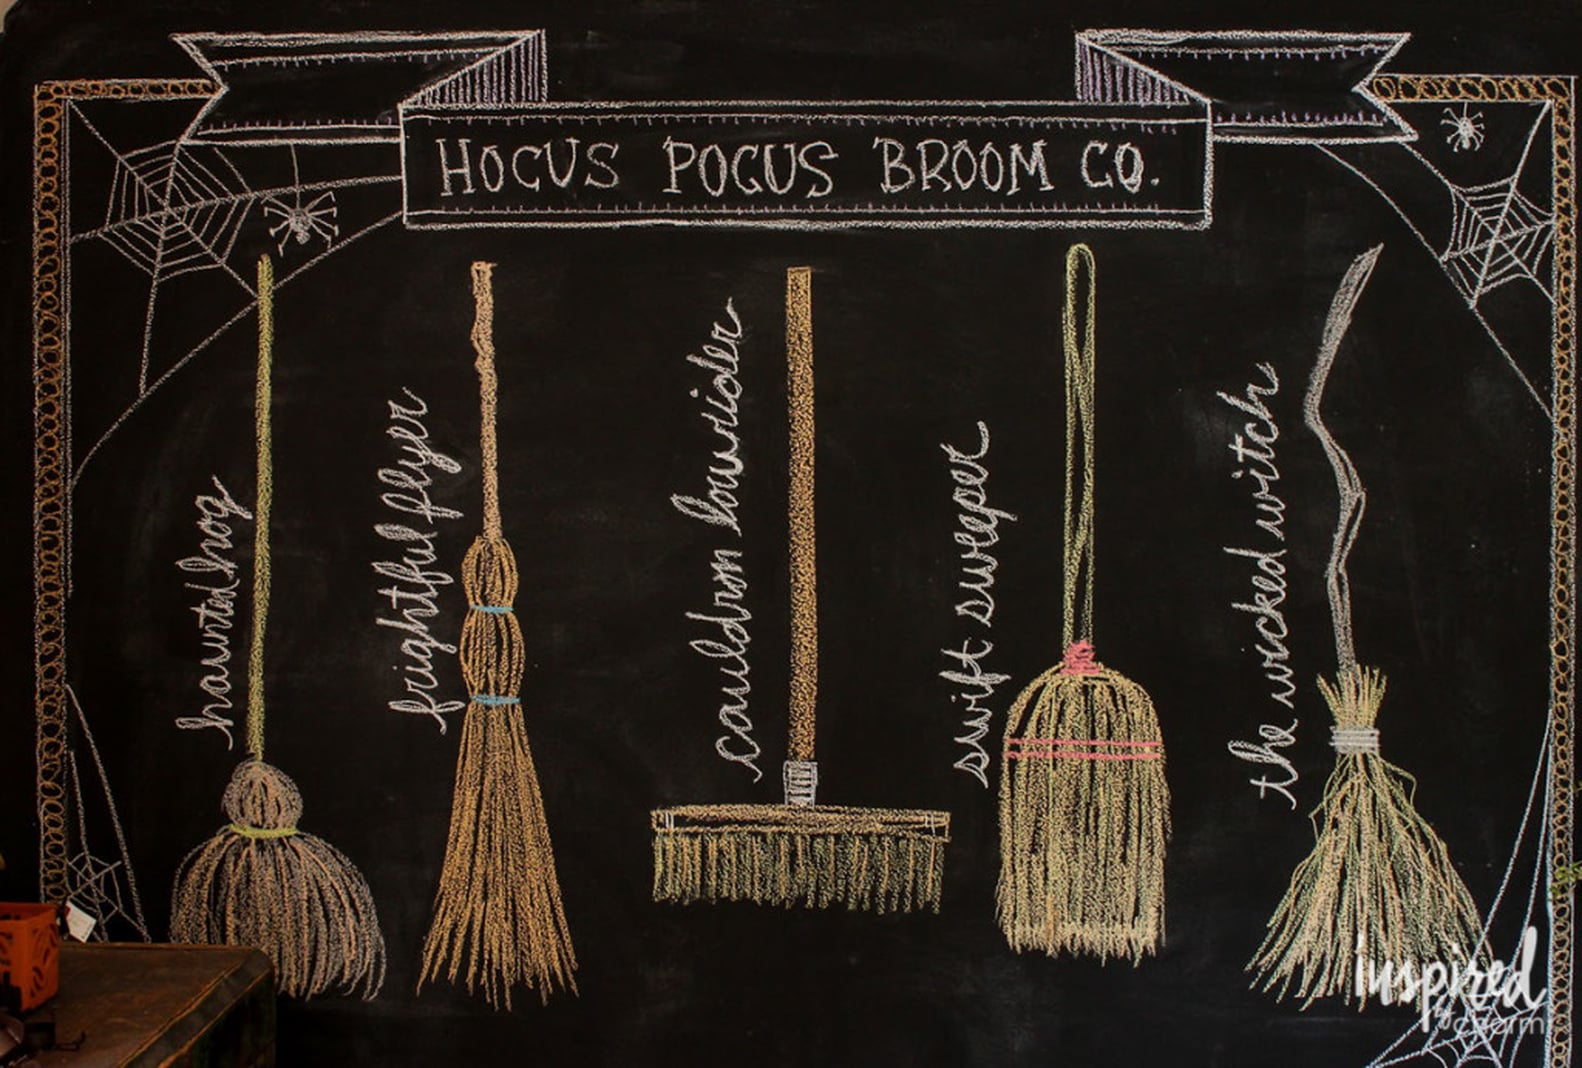 HOCUS POCUS BROOM CO.
haunted hog
frightful flyer
cauldron lowrider
swift sweeper
the wicked witch
inspired
by charm